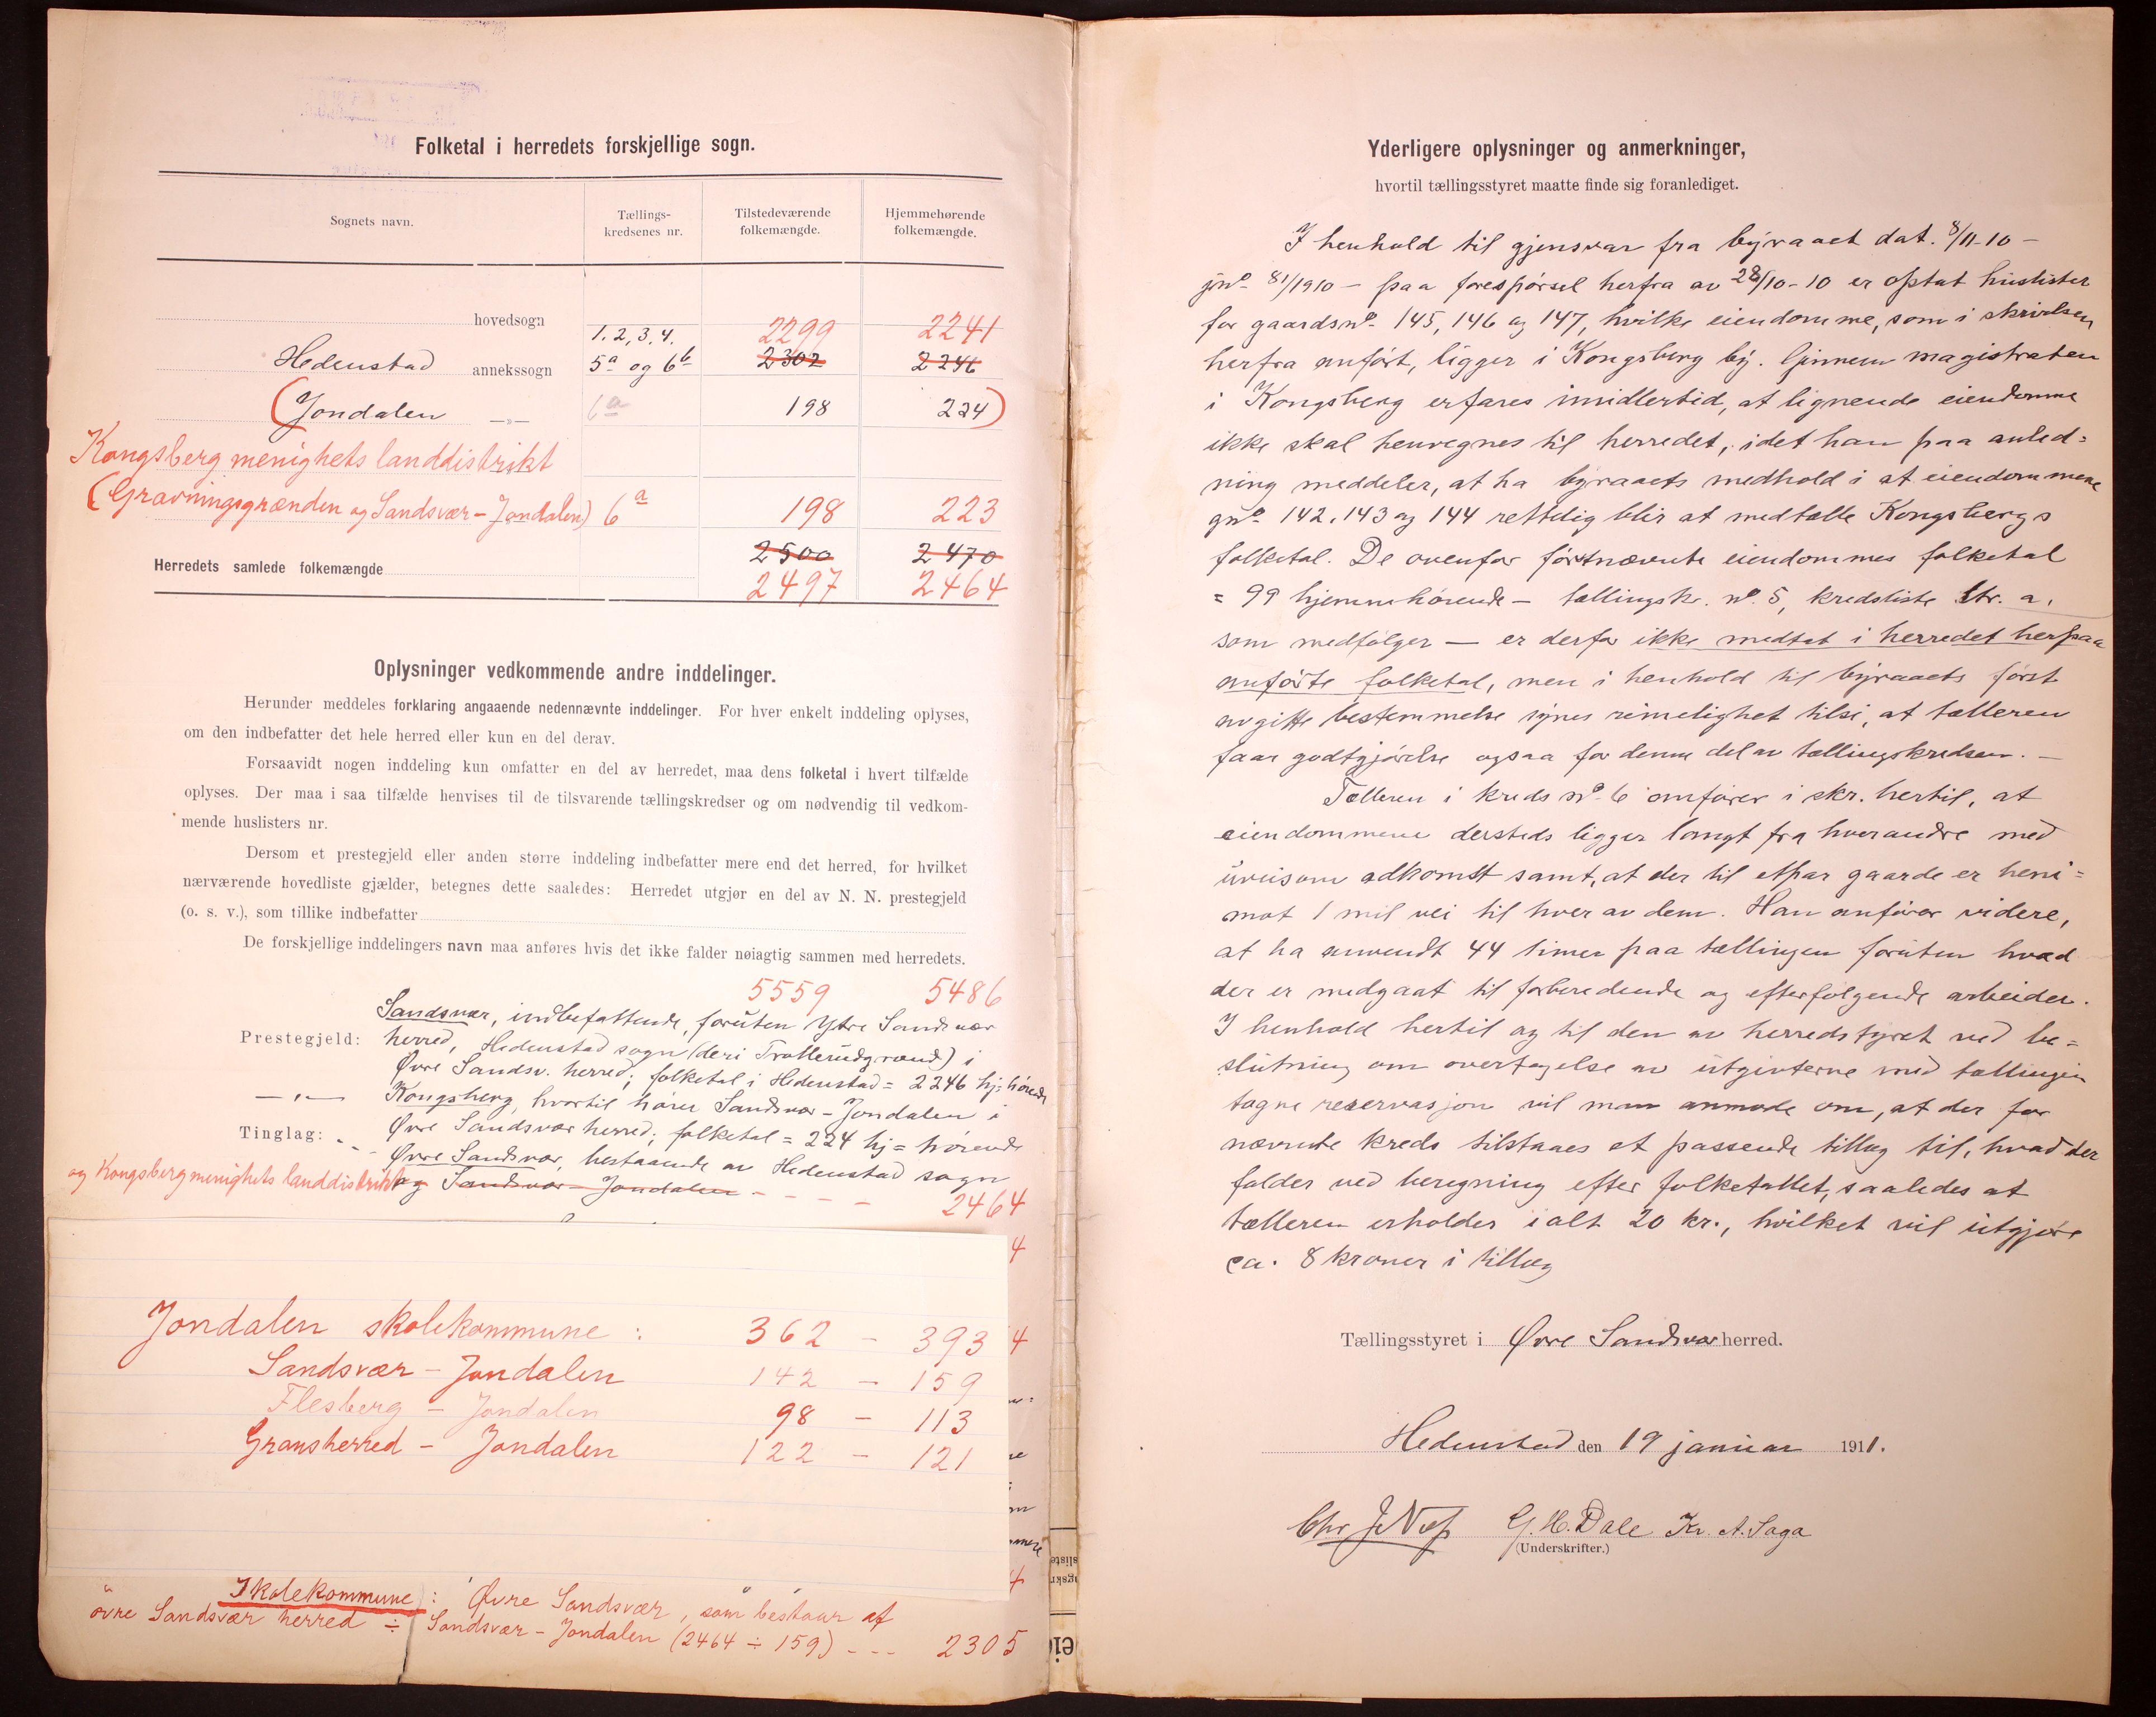 Folketal i herredets forskjellige sogn.
Sognets navn.
Tællings-
kredsenes nr.
Tilstedeværende
folkemængde.
Hjemmehørende
folkemængde.
hovedsogn
1. 2, 3, 4. 2299 2241
Hedenstad annekssogn 5a og 6b 2302 2246
(Jondalen —„— 6a 198 224)
Kongsberg menighets landdistrikt
(Gravningsgrænden og Sandsvær - Jondalen) 6a 198 223
2500 2470
Herredets samlede folkemængde
2497 2464
Oplysninger vedkommende andre inddelinger.
Herunder meddeles forklaring angaaende nedennævnte inddelinger. For hver enkelt inddeling oplyses,
om den indbefatter det hele herred eller kun en del derav.
Forsaavidt nogen inddeling kun omfatter en del av herredet, maa dens folketal i hvert tilfælde
oplyses. Der maa i saa tilfælde henvises til de tilsvarende tællingskredser og om nødvendig til vedkom-
mende huslisters nr.
Dersom et prestegjeld eller anden større inddeling indbefatter mere end det herred, for hvilket
nærværende hovedliste gjælder, betegnes dette saaledes: Herredet utgjør en del av N. N. prestegjeld
(o. s. v.), som tillike indbefatter
De forskjellige inddelingers navn maa anføres hvis det ikke falder nøiagtig sammen med herredets.
5559 5486
Sandsvær, indbefattende, foruten Ytre Sandsvær
Prestegjeld: herred, Hedenstad sogn (deri Trollerudgrend) i
Øvre Sandsv. herred; folketal i Hedenstad = 2246 hj=hörende
—„— Kongsberg, hvortil hörer Sandsvær - Jondalen i
Øvre Sandsvær herred; folketal = 224 hj = hörende
Tinglag: Øvre Sandsvær, bestaaende av Hedenstad sogn
og Kongsberg menighets landdistrikt og Sandsvær - Jondalen - - - -
2464
Jondalen skolekommune : 362 - 393
Sandsvær - Jondalen 142 - 159
Flesberg - Jondalen 98 - 113
Gransherred - Jondalen 122 - 121
Skolekommune: Øvre Sandsvær, som bestaar af
øvre Sandsvær herred ÷ Sandsvær - Jondalen (2464 ÷ 159) - - - 2305
Yderligere oplysninger og anmerkninger,
hvortil tællingsstyret maatte finde sig foranlediget.
I henhold til gjensvar fra byraaet dat. 8/11-10 -
jno 81/1910 - paa forespörsel herfra av 28/10-10 er optat huslister
for gaardsno 145, 146 og 147, hvilke eiendomme, som i skrivelsen
herfra anfört, ligger i Kongsberg by. Gjennem magistraten
i Kongsberg erfares imidlertid, at lignende eiendomme
ikke skal henregnes til herredet, idet han paa anled=
ning meddeler, at ha byraaets medhold i at eiendommene
gno 142, 143 og 144 rettelig blir at medtælle Kongsbergs
folketal. De ovenfor förstnævnte eiendommes folketal
= 99 hjemmehörende - tællingskr. no. 5, kredsliste ltr. a,
som medfölger — er derfor ikke medtat i herredet herpaa
anförte folketal, men i henhold til byraaets först
avgitte bestemmelse synes rimelighet tilsi, at tælleren
faar godtgjörelse ogsaa for denne del av tællingskredsen. —
Tælleren i kreds no 6 anförer i skr. hertil, at
eiendommene dersteds ligger langt fra hverandre med
uveisom adkomst samt, at der til etpar gaarde er hen i=
mot 1 mil vei til hver av dem. Han anförer videre,
at ha anvendt 44 timer paa tællingen foruten hvad
der er medgaat til forberedende og efterfölgende arbeider.
I henhold hertil og til den av herredstyret ved be=
slutning om overtagelse av utgivterne ved tællingen
tagne reservasjon vil man anmode om, at der for
nævnte kreds tilstaaes et passende tillæg til, hvad der
falder ved beregning efter folketallet, saaledes at
tælleren erholder i alt 20 kr., hvilket vil utgjøre
ca. 8 kroner i tillæg
Tællingsstyret i Øvre Sandsvær herred.
Hedenstad den 19 januar 1911.
G. H. Dale Kr. A. Saga
(Underskrifter.)